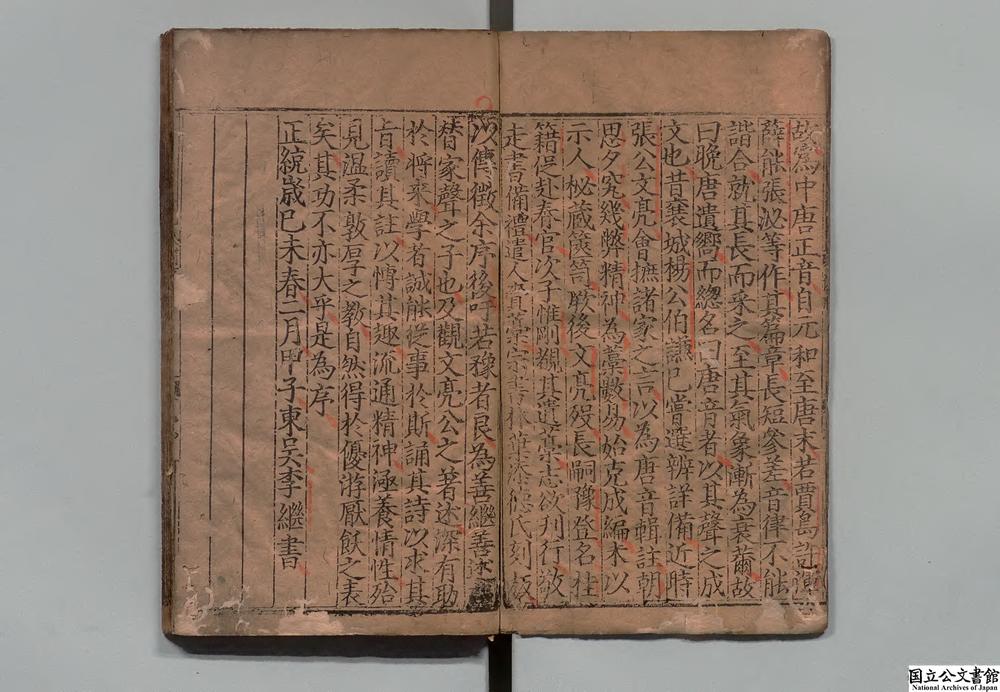 故為中唐正音自元和至唐末若賈島許渾
薛能張泌等作其篇章長短參差音律不能
諧合就其長而采之至其氣象漸為衰薾故
曰晚唐遺嚮而緫名曰唐音者以其聲之成
文也昔襄城楊公伯謙已嘗選辨詳備近時
張公文亮會摭諸家之言以為唐音輯註朝
思夕究幾弊精神為藁數易始克成編未以
示人秘蔵篋笥厥後文亮歿長嗣豫登名仕
籍促赴春官次子惟剛覩其遺藁志欲刋行敬
走書備禮遣人賫藁
德氏刻板
以傳徴余序後吁若豫者良為善繼善述
替家聲之子也及觀文亮公之著述深有助
於將来學者誠能從事於斯誦其詩以求其
旨讀其註以愽其趣流通精神涵養情性殆
見温柔敦厚之教自然得於優游厭飫之表
矣其功不亦大乎是為序
正統歲己未春二月甲子東吳李繼書
国立公文書館
National Archives of Japan